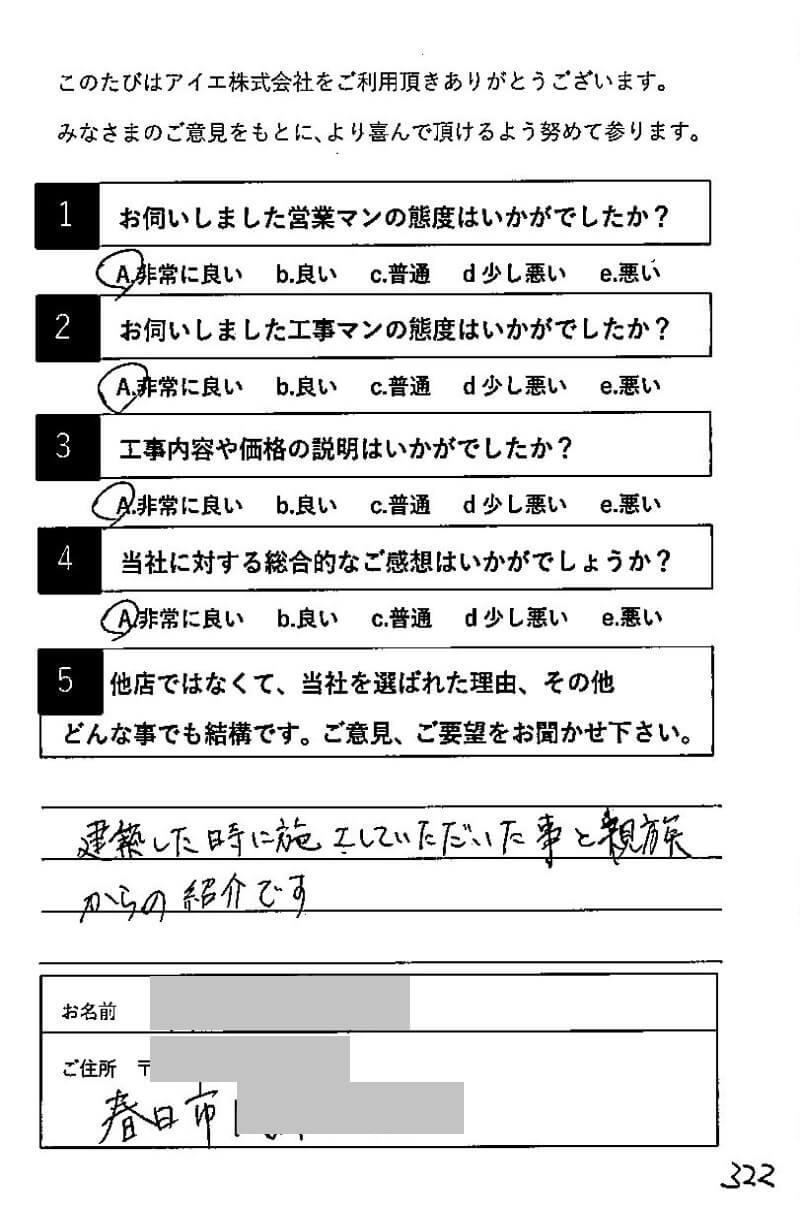 このたびはアイエ株式会社をご利用頂きありがとうございます。
みなさまのご意見をもとに、より喜んで頂けるよう努めて参ります。
1 お伺いしました営業マンの態度はいかがでしたか？
A.非常に良い b.良い c.普通 d 少し悪い e.悪い
2 お伺いしました工事マンの態度はいかがでしたか？
A.非常に良い b.良い c.普通 d 少し悪い e.悪い
3 工事内容や価格の説明はいかがでしたか？
A.非常に良い b.良い c.普通 d 少し悪い e.悪い
4 当社に対する総合的なご感想はいかがでしょうか？
A.非常に良い b.良い c.普通 d 少し悪い e.悪い
5 他店ではなくて、当社を選ばれた理由、その他
どんな事でも結構です。ご意見、ご要望をお聞かせ下さい。
建築した時に施工していただいた事と親族
からの紹介です
お名前
ご住所 〒
春日市
322